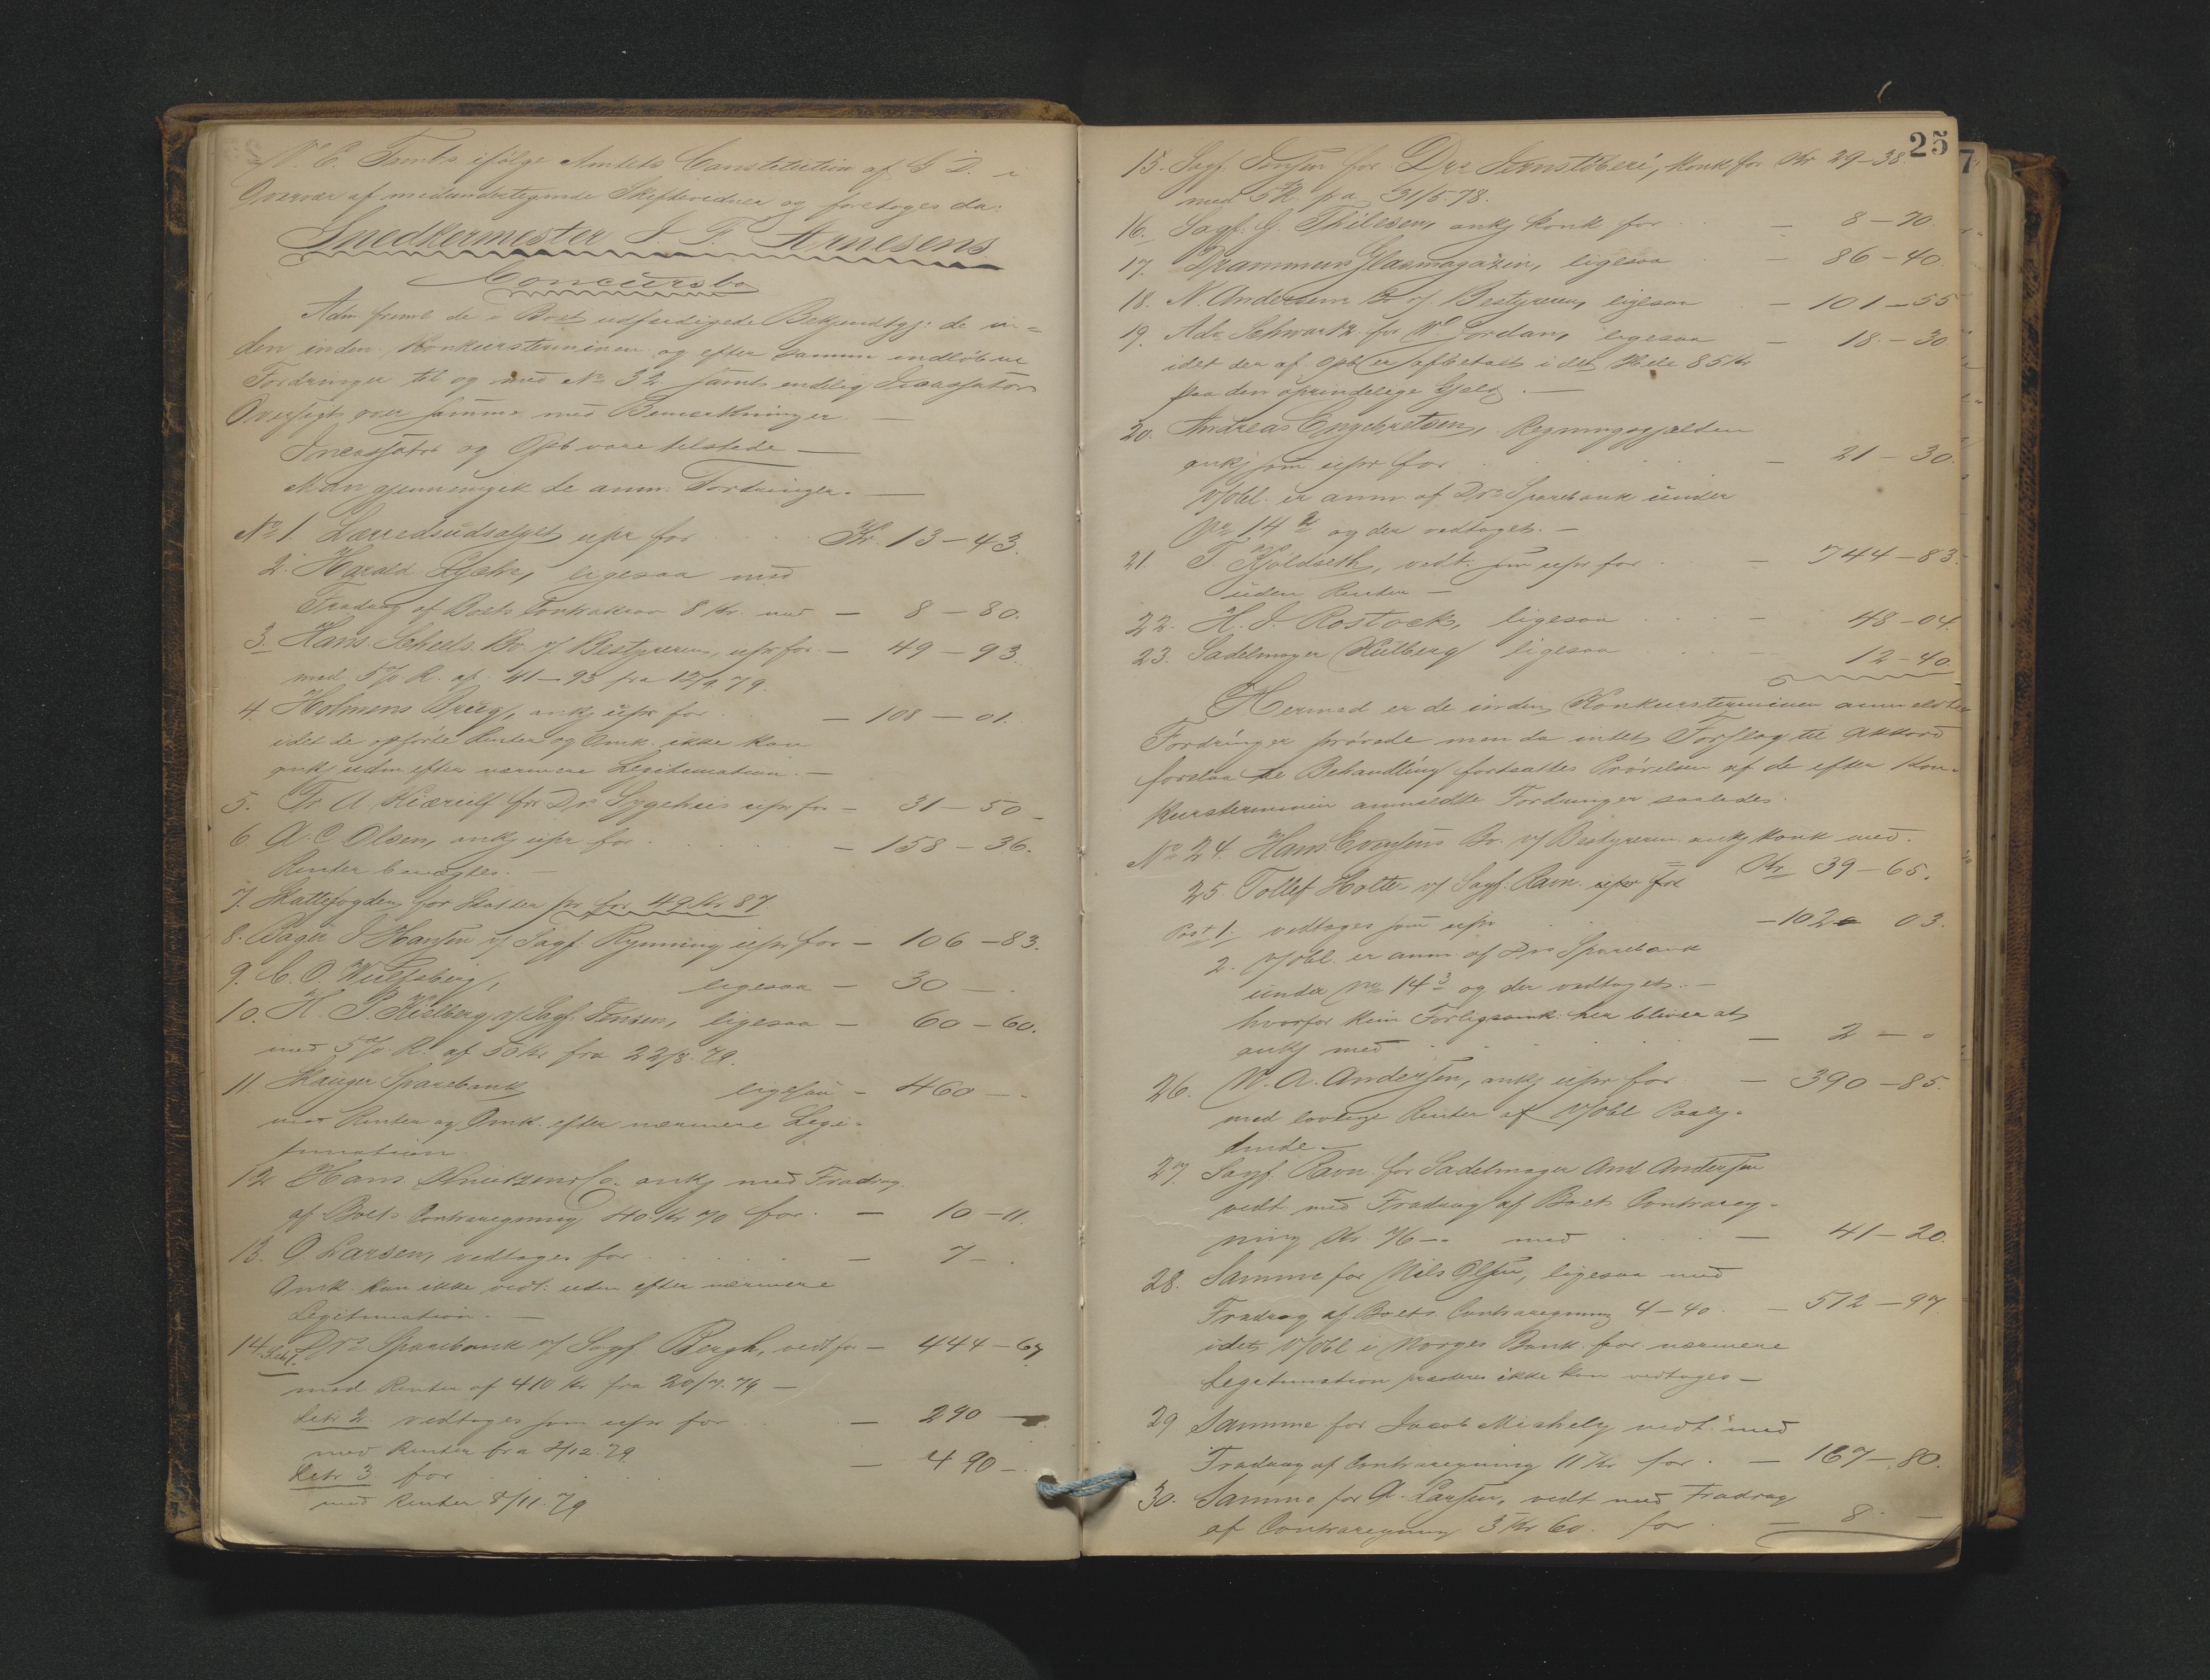 N. E. Tambs ifølge Amtets Constitution af G D. i
Overvær af medundertegnede Skiftevidner og foretoges da:
Snedkermester J T. Arnesens
Concursbo
Adm freml de i Boet udfærdigede Bekjendtgj: de in=
den inden Konkursterminen og efter samme indløbne
Fordringer til og med No 32 samt endelig Incassators
Oversigt over samme med Bemærkninger. —
Incassator og Opb vare tilstede —
Man gjennemgik de anm. Fordringer. —
No 1 Lærredsudsalget upr for Kr. 13-43.
2. Harald Lyche, ligesaa med
Fradrag af Boets Contrakrav 8 Kr. med — 8-80.
3. Hans Scheels Bo v/ Bestyreren, upr for — 49-93.
med 5 % R. af 41-93 fra 12/9 79.
4 Holmens Brug, ankj upr for — 108-01.
idet de opførte Renter og Omk. ikke kan
ankj uden efter nærmere Legitimation. —
5. Fr A Kiærulf for Drs Sygehus upr for — 31-50
6 A. C Olsen, ankj upr for — 158-36.
Renter benægtes. —
7. Skattefogden for Skatter pr for 49 Kr 87
8. Bager J Hansen v/ Sagf. Rynning upr for — 106-83.
9. C. O. Wulfsberg, ligesaa — 30 —
10. H. P. Kielberg v/ Sagf. Jensen, ligesaa — 60-60.
med 5 % R. af 50 Kr fra 22/8. 79.
11. Skauger Sparebank ligesaa — 460 —
med Renter og Omk. efter nærmere Legi-
timation.
12 Hans Knutzen & Co. ankj med Fradrag
af Boets Contraregning 40 Kr 70 for. — 10-11.
13. O. Larsen, vedtages for — 7 —
Omk. kan ikke vedt: uden efter nærmere
Legitimation. —
14. Litr 1. Drs Sparebank v/ Sagf Bergh, vedt for — 444-67
med Renter af 410 Kr fra 20/7. 79 —
Litr 2. vedtages som upr for — 290 —
med Renter fra 2/12. 79
Litr 3 for — 490 —
med Renter 8/11. 79
25
15. Sagf. Jensen for Drs Jernstøberi, konk for Kr 29-38.
med 5 % R. fra 31/5. 78.
16. Sagf. G. Thilesen, ankj konk for — 8-70.
17. Drammens Glasmagazin, ligesaa — 86-40.
18. N. Andersens Bo v/ Bestyreren, ligesaa — 101-55
19. Adv Schwartz for Jordan, ligesaa — 18.-30
idet der af Opb er afbetalt i det Hele 85 Kr
paa den oprindelige Gjeld. —
20. Andreas Engebretsen, Regningsgjælden
ankj som upr for — 21-30.
V/Obl. er anm. af Drs Sparebank under
No 14 2 og der vedtaget. —
21. T. Kjøldseth, vedt. som upr for — 744-83.
uden Renter —
22. H. J. Rostock, ligesaa — 48-04.
23. Sadelmager Hülberg ligesaa — 12-40.
Hermed er de inden Konkursterminen anmeldte
Fordringer prøvede men da intet Forslag til Akkord
forelaa til Behandling fortsattes Prøvelsen af de efter Kon-
kursterminen anmeldte Fordringer saaledes.
No 24. Hans Evensens Bo v/ Bestyreren ankj konk med.
Kr 39-65.
25. Tollef Holter v/ Sagf. Ravn. upr for
Post 1. vedtages som upr — 102 03.
2. V/Obl. er anm. af Drs Sparebank
under No 14 3 og der vedtaget. —
hvorfor kun Forligsomk. her bliver at
ankj med — 2 —
26. N. A. Andersen, ankj upr for — 390-85.
med lovlige Renter af V/Obl Paaly-
dende —
27. Sagf. Ravn for Sadelmager And Andersen
vedt. med Fradrag af Boets Contrareg-
ning Kr. 76 — med — 41-20.
28. Samme for Nils Olsen, ligesaa med
Fradrag af Boets Contraregning 4-40. — 512-97.
idet V/Obl i Norges Bank for nærmere
Legitimation præsteres ikke kan vedtages —
29 Samme for Jacob Michely vedt: med
Fradrag af Contraregning 11 Kr for. — 167-80.
30. Samme for A. Larsen, vedt med Fradrag
af Contraregning 3 Kr 60. for — 8 —